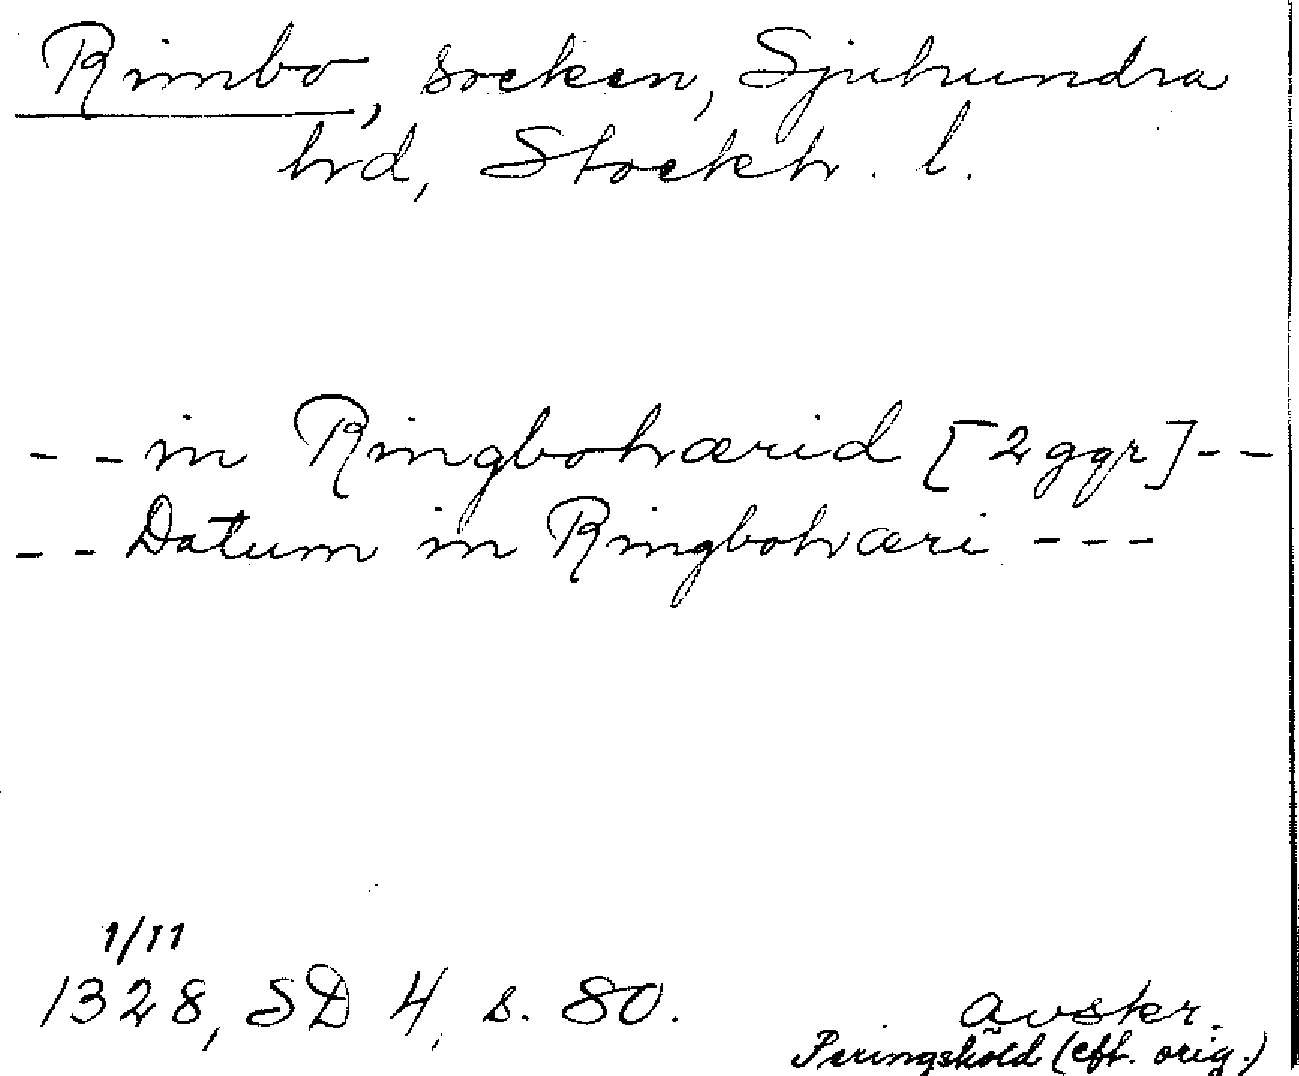 Rimbo, socken, Sjuhundra
hrd, Stockh. l.
- - in Ringbohærid [2 ggr] - -
- - Datum in Ringbohæri - - -
1/11
1328, SD 4, s. 80.
avskr.
Peringsköld (eft. orig.)